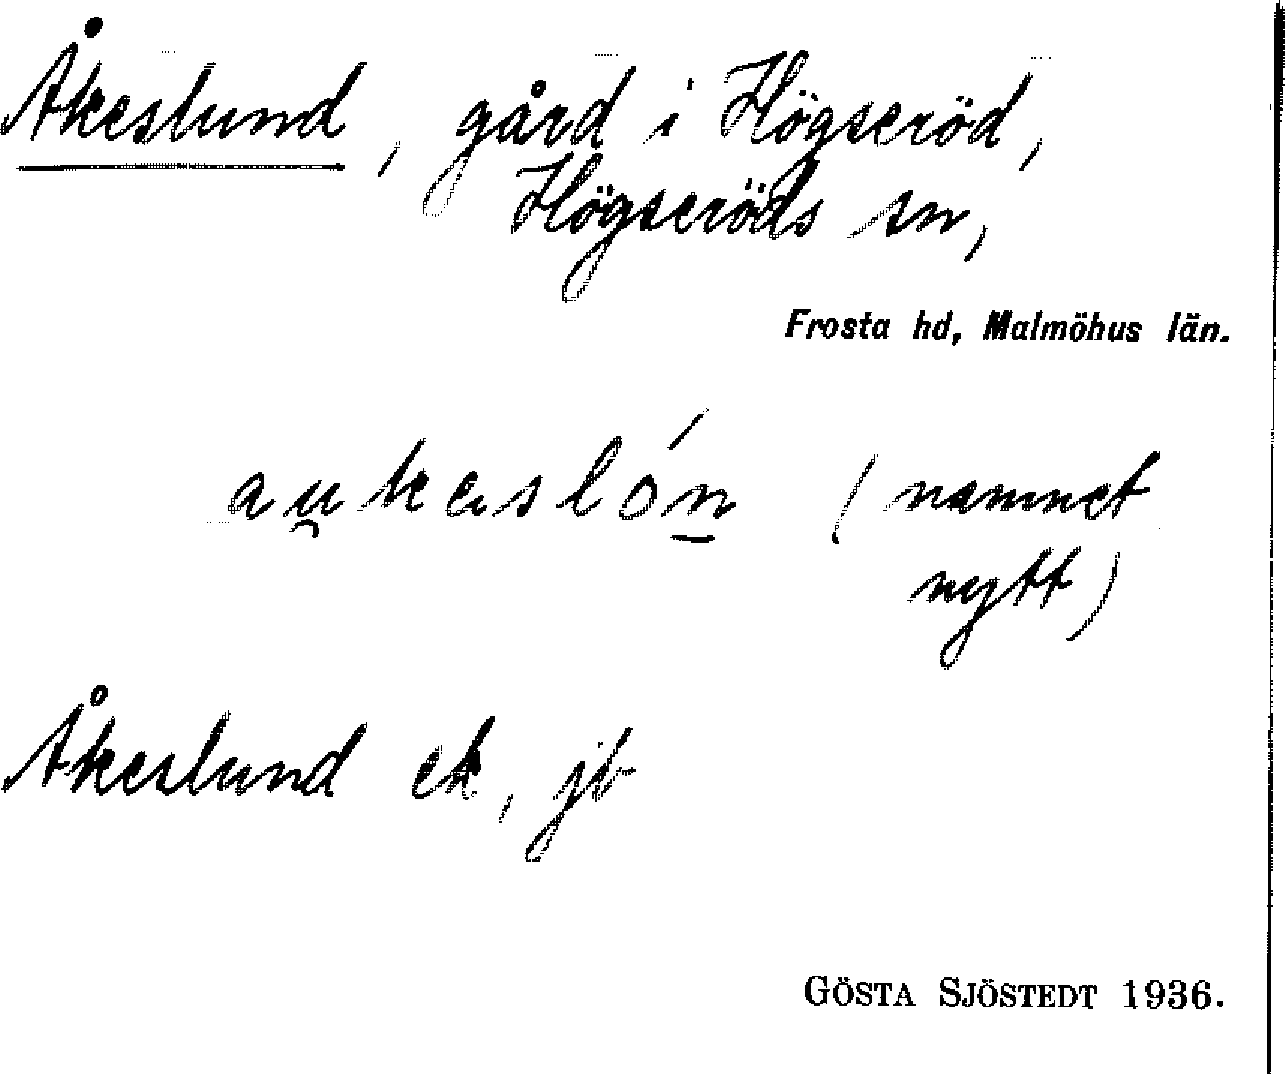 Åkeslund, gård i Högseröd,
Högseröds sn,
Frosta hd, Malmöhus län.
au̯kəslón̲ (namnet
nytt)
Åkeslund ek, jb
GÖSTA SJÖSTEDT 1936.